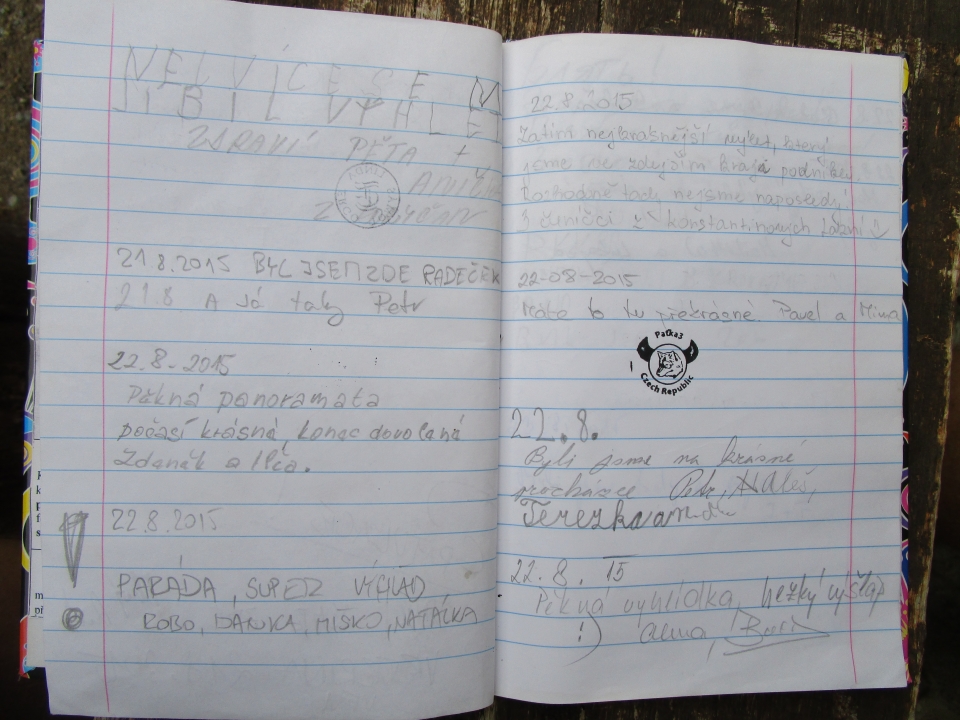 NELVÍCE SE N
LIBIL VÝHLE
ZDRAVÍ PÉŤA +
21.8.2015 BYL JSEM ZDE RADEČEK
21.8 A Já taky Petr
22.8.2015
Pěkná panoramata
počasí krásná, konec dovolená
Zdeněk a
22.8.2015
PARÁDA, SUPER VÍHLAD
ROBO, DANKA, MIŠKO, NATÁLKA
22.8.2015
Zatím nejkrásnější výlet, který
jsme ve zdejším kraji podnikli.
Rozhodně tady nejsme naposledy!
3 čuníčci z konstantinových lázní
22-08-2015
Máte to tu překrásné. Pavel a Mirka
Paťka3
Czech Republic
22.8.
Byli jsme na krásné
procházce Petr, Aleš,
Terezka
22.8.15
Pěkná vyhlídka, hezký výšlap
:) Alena,